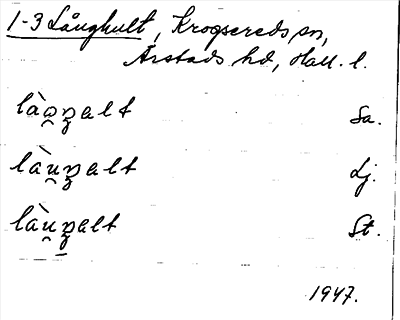 1-3 Långhult, Krogsereds sn,
Årstads hd, Hall. l.
là̯o̯ŋalt Sa.
làu̯ŋalt Lj.
làu̯ŋalt St.
1947.